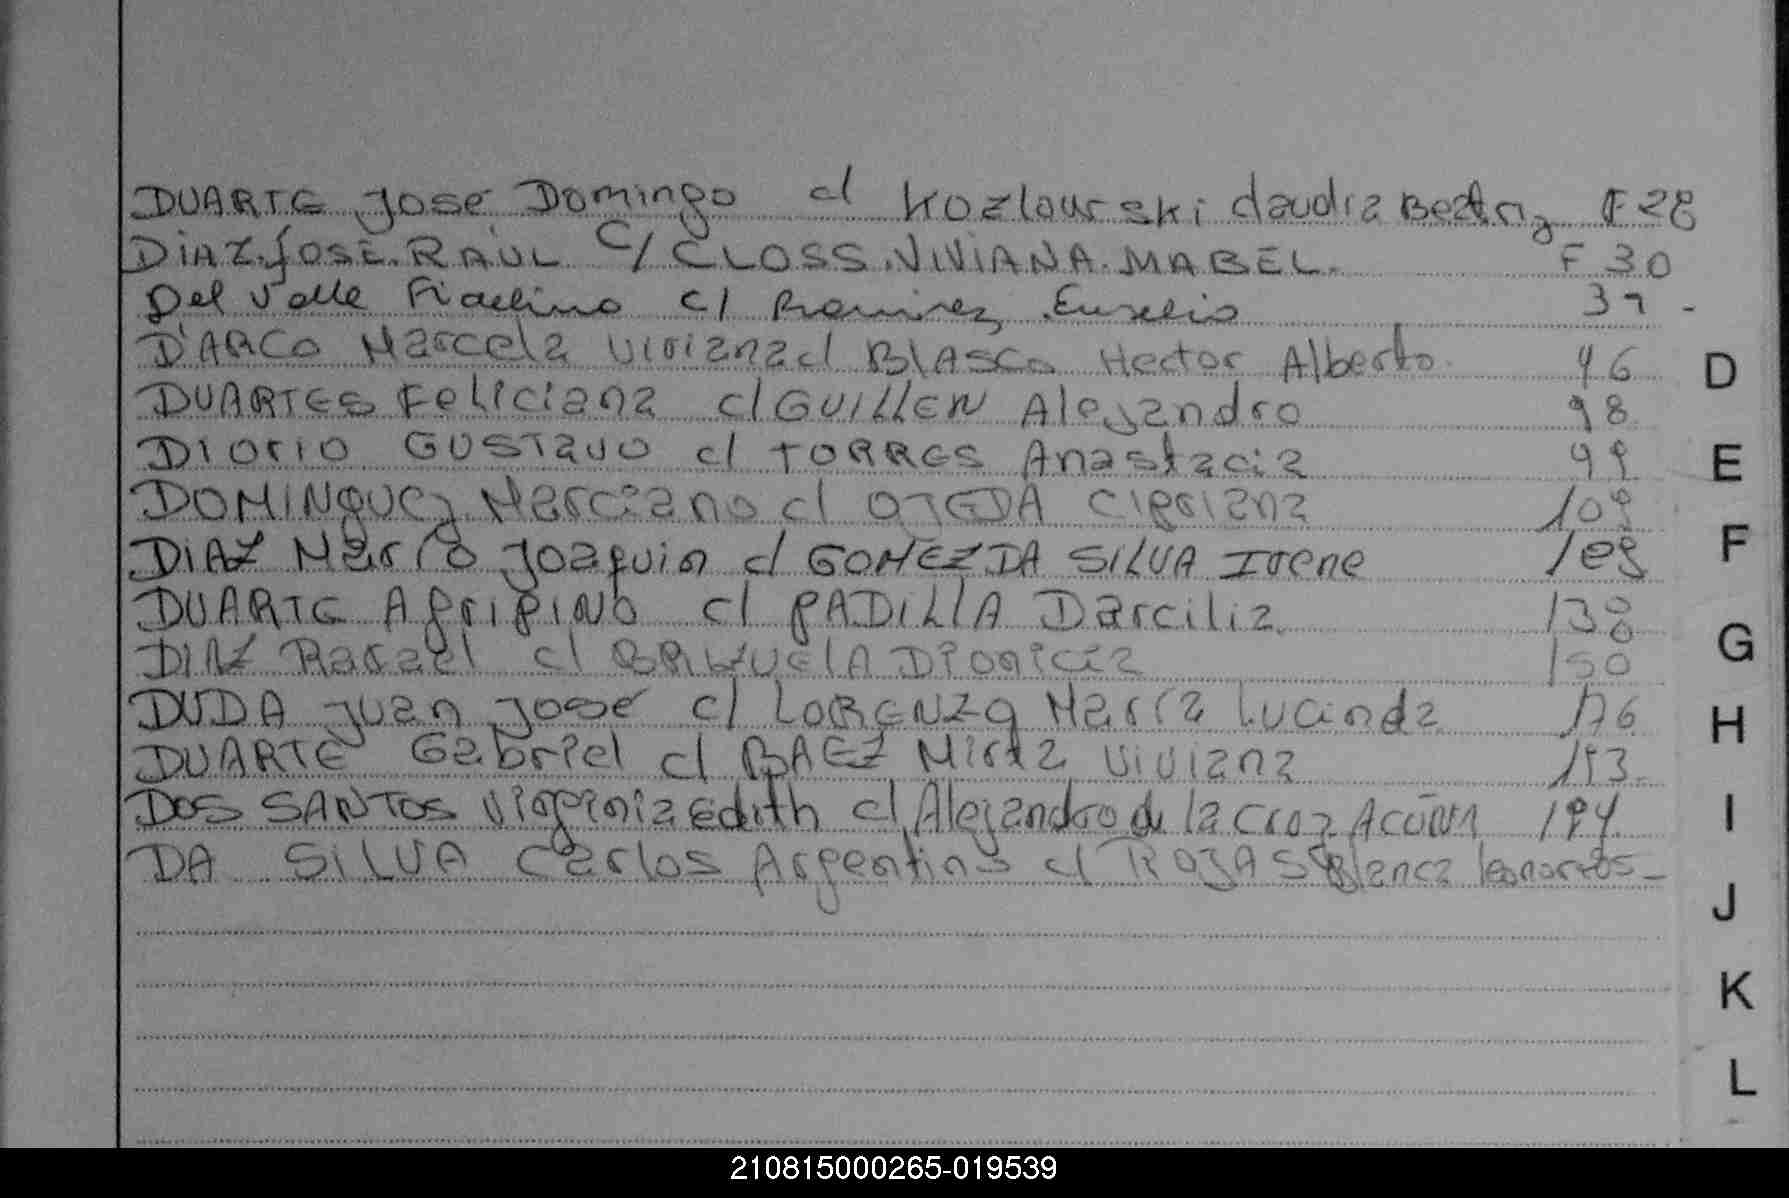 DUARTE José Domingo c/ Kozlowrski Claudia Beatriz F 28
DIAZ. JOSÉ. RAÚL C/ CLOSS. VIVIANA. MABEL. F 30
Del Valle Fidelino c/ Ramirez, Eusebio 37 -
D'ARCO Marcela Viviana c/ BLASCO Hector Alberto 46
DUARTES Feliciana c/ GUILLEN Alejandro 98
DIORIO GUSTAVO c/ TORRES Anastacia 99
DOMINGUEZ Marciano c/ OJEDA CIPRIANA 109
DIAZ Mario Joaquin c/ GOMEZ DA SILVA Irene
DUARTE AGRIPINO c/ PADILLA Darcilia 138
DIAZ Rafael c/ BRIZUELA Dionicia 150
DUDA Juan José c/ LORENZO Maria Lucinda 176
DUARTE Gabriel c/ BAEZ Mirta Viviana 193
DOS SANTOS Virginia Edith c/ Alejandro de la Cruz ACUÑA 194
DA SILVA Carlos Argentino c/ ROJAS Blanca
D
E
F
G
H
I
J
K
L
210815000265-019539